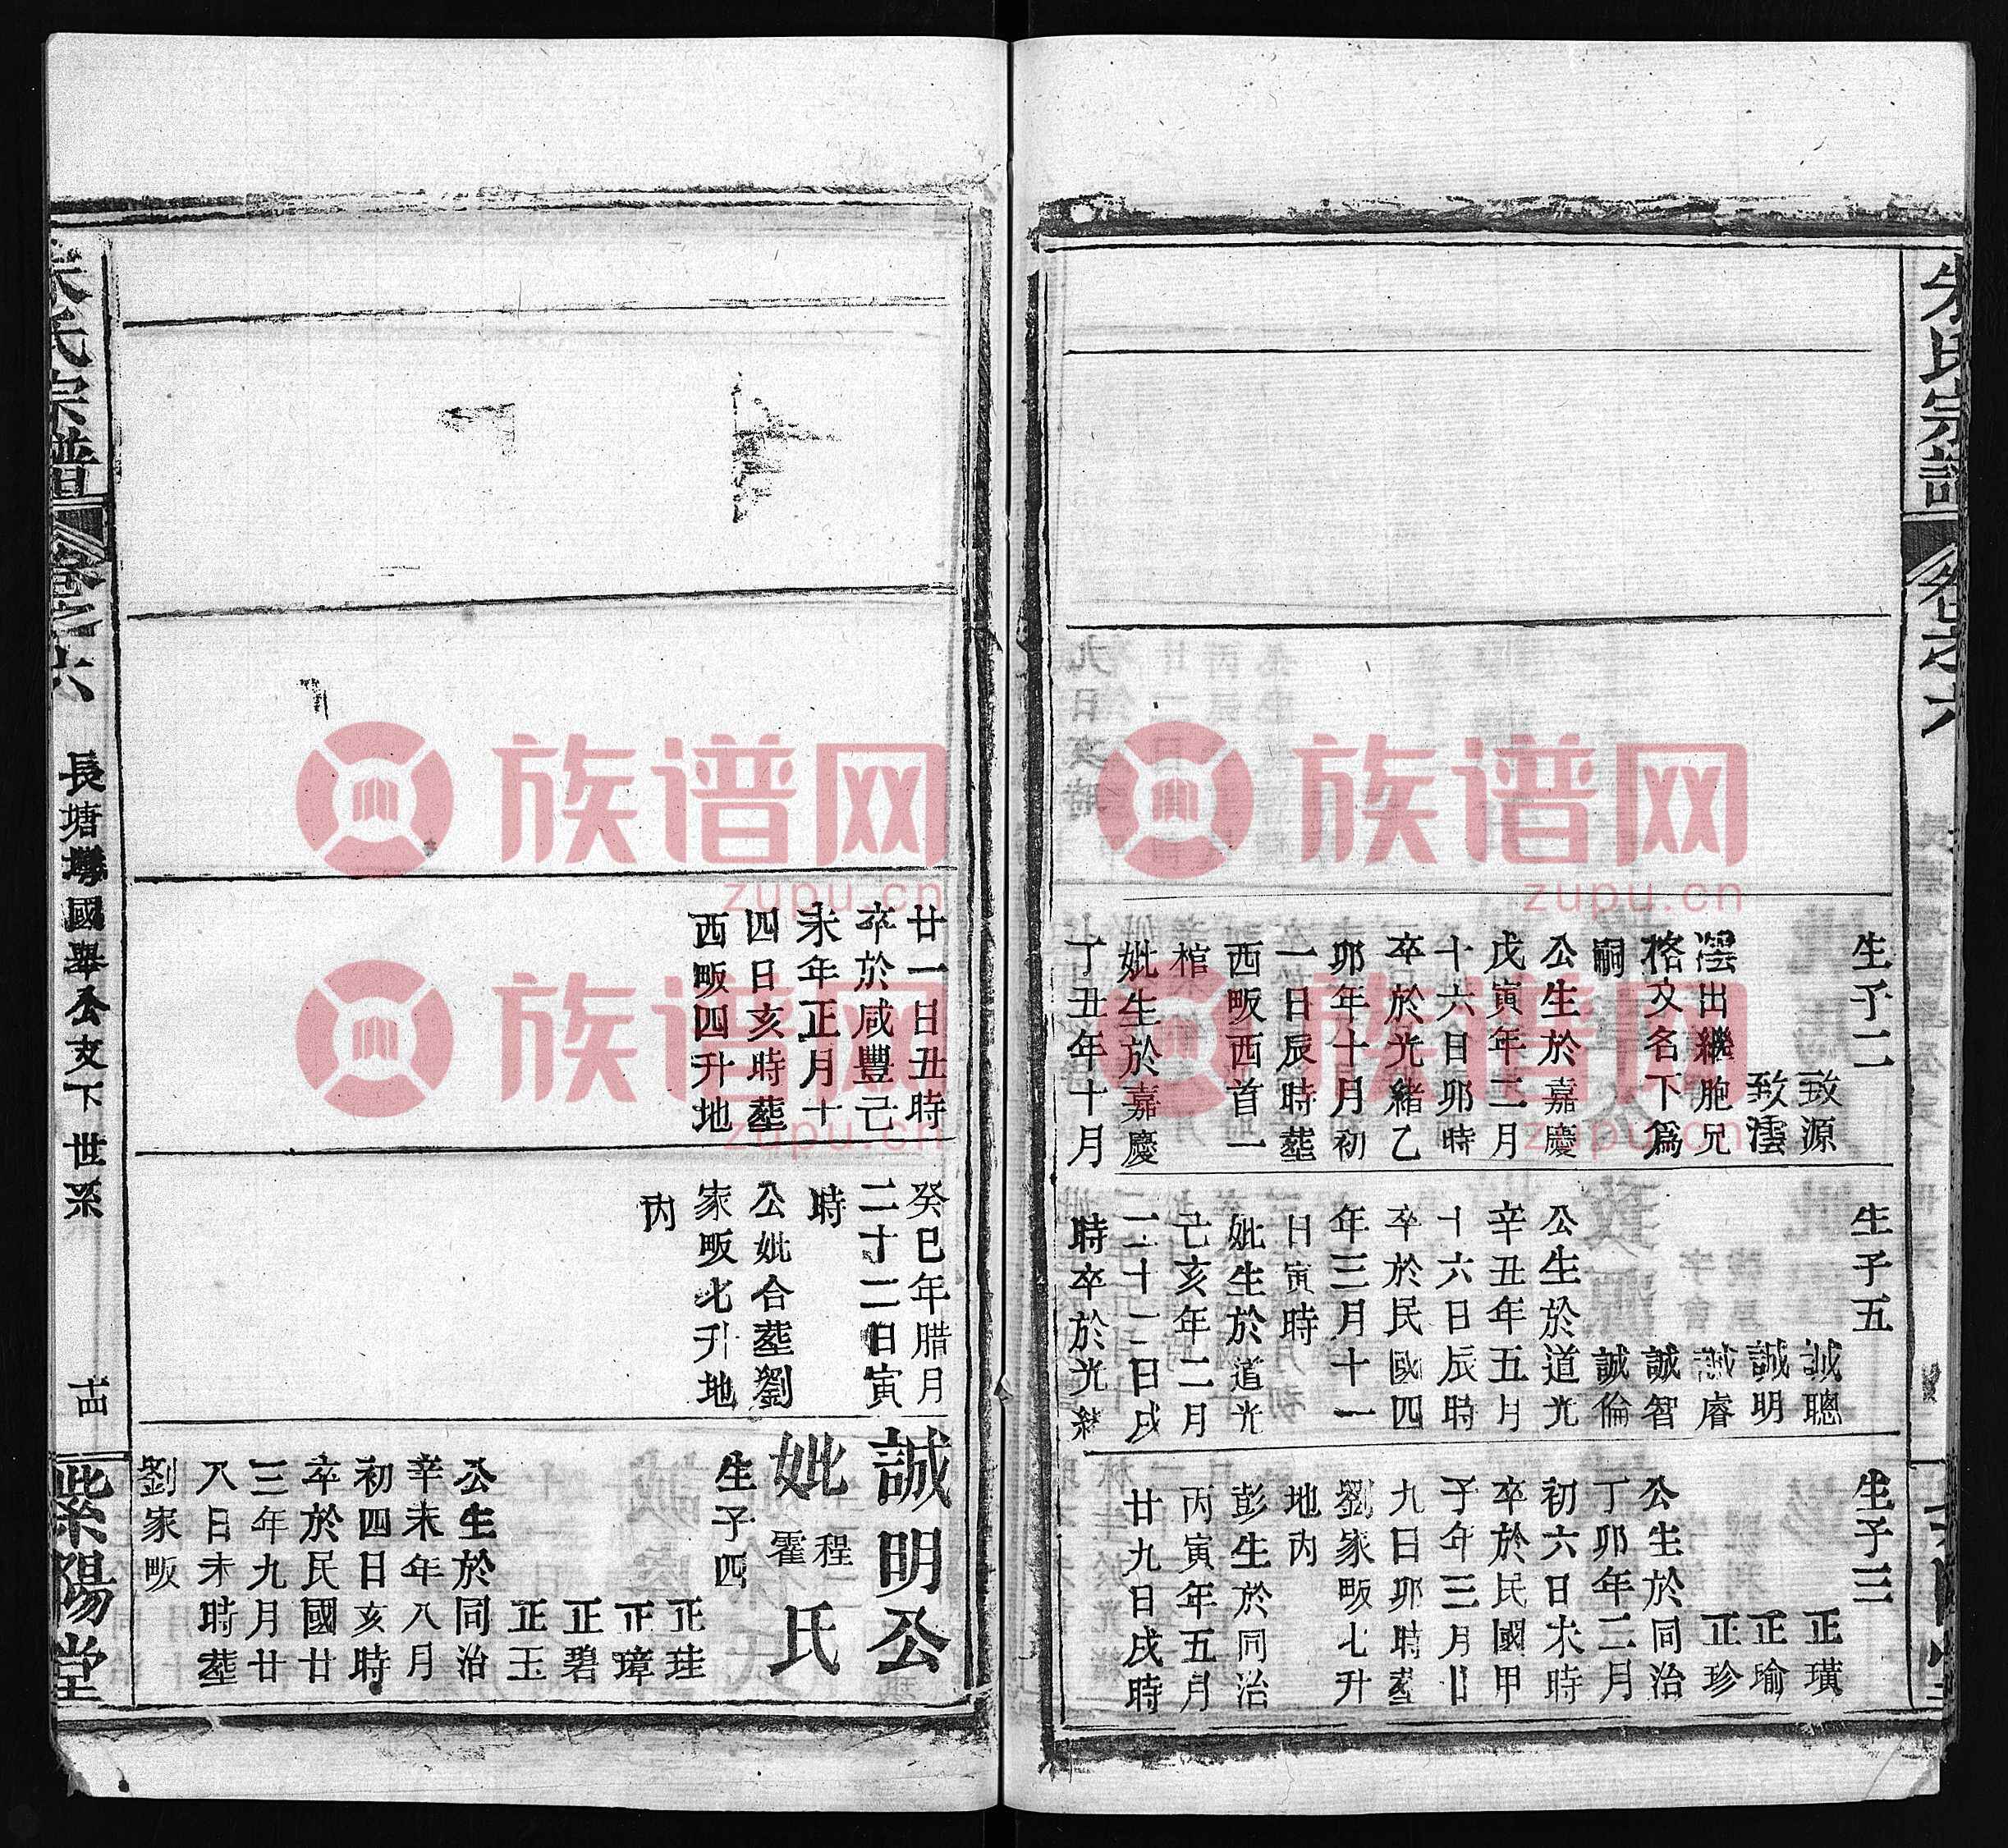 朱氏宗譜
卷之六
生子二
致源
致澐
澐出繼胞兄
格文名下爲
嗣
公生於嘉慶
戊寅年二月
十六日卯時
卒於光緒乙
卯年十月初
一日辰時塟
西畈西首一
棺
妣生於嘉慶
丁丑年十月
生子五
誠聰
誠明
誠睿
誠智
誠倫
公生於道光
辛丑年五月
十六日辰時
卒於民國四
年三月十一
日寅時
妣生於道光
己亥年二月
二十二日戌
時卒於光緒
生子三
正璜
正瑜
正珍
公生於同治
丁卯年二月
初六日未時
卒於民國甲
子年三月廿
九日卯時塟
劉家畈七升
地內
彭生於同治
丙寅年五月
廿九日戌時
廿一日丑時
卒於咸豐己
未年正月十
四日亥時塟
西畈四升地
癸巳年腊月
二十二日寅
時
公妣合塟劉
家畈七升地
內
誠明公
妣程霍氏
生子四
正珪
正璋
正碧
正玉
公生於同治
辛未年八月
初四日亥時
卒於民國廿
三年九月廿
八日未時塟
劉家畈
朱氏宗譜
卷之六
長塘塆國舉公支下世系
十四
紫陽堂
族谱网
zupu.cn
族谱网
zupu.cn
族谱网
zupu.cn
族谱网
zupu.cn